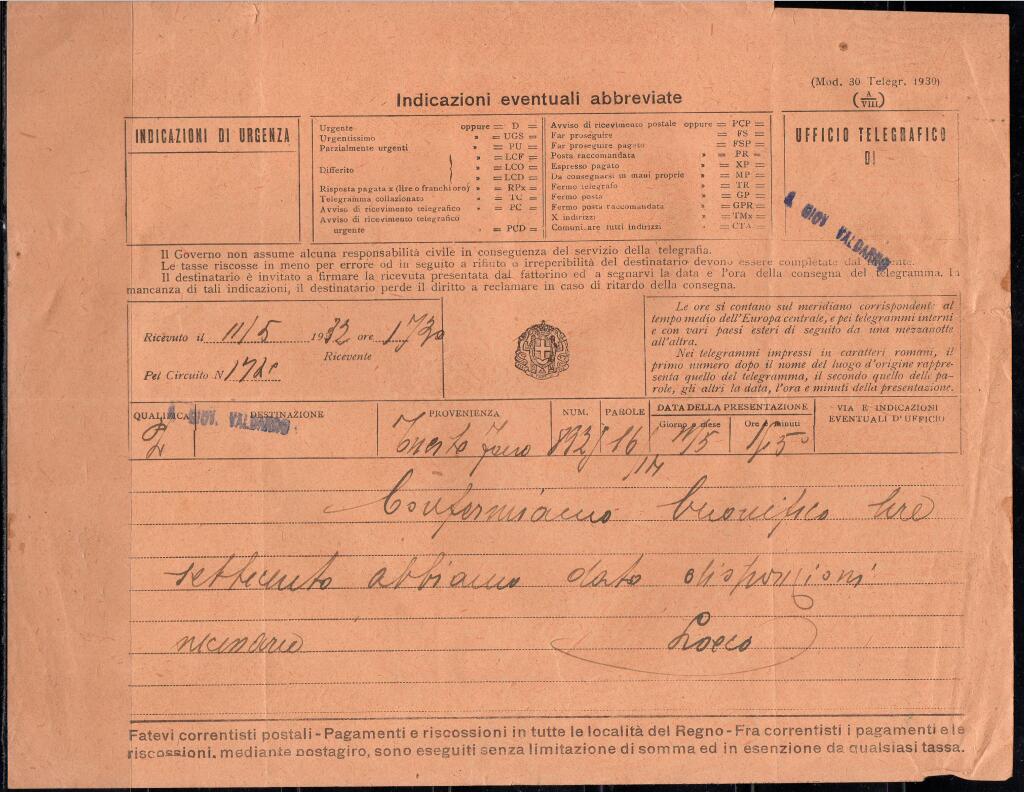 (Mod. 30 Telegr. 1930)
(A/VIII)
Indicazioni eventuali abbreviate
INDICAZIONI DI URGENZA
Urgente oppure = D =
Urgentissimo » = UGS =
Parzialmente urgenti » = PU =
Differito
» = LCF =
» = LCO =
» = LCD =
Risposta pagata x (lire o franchi oro) » = RPx =
Telegramma collazionato » = TC =
Avviso di ricevimento telegrafico » = PC =
Avviso di ricevimento telegrafico
urgente » = PCD =
Avviso di ricevimento postale oppure = PCP =
Far proseguire » = FS =
Far proseguire pagato » = FSP =
Posta raccomandata » = PR =
Espresso pagato » = XP =
Da consegnarsi in mani proprie » = MP =
Fermo telegrafo » = TR =
Fermo posta » = GP =
Fermo posta raccomandata » = GPR =
X indirizzi » = TMx =
Comunicare tutti indirizzi » = CTA =
UFFICIO TELEGRAFICO
DI
S. GIOV. VALDARNO
Il Governo non assume alcuna responsabilità civile in conseguenza del servizio della telegrafia.
Le tasse riscosse in meno per errore od in seguito a rifiuto o irreperibilità del destinatario devono essere completate dal mittente.
Il destinatario è invitato a firmare la ricevuta presentata dal fattorino ed a segnarvi la data e l'ora della consegna del telegramma. In
mancanza di tali indicazioni, il destinatario perde il diritto a reclamare in caso di ritardo della consegna.
Ricevuto il 11/5 1932 ore 1730
Ricevente
Pel Circuito N
Le ore si contano sul meridiano corrispondente al
tempo medio dell'Europa centrale, e pei telegrammi interni
e con vari paesi esteri di seguito da una mezzanotte
all'altra.
Nei telegrammi impressi in caratteri romani, il
primo numero dopo il nome del luogo d'origine rappre-
senta quello del telegramma, il secondo quello delle pa-
role, gli altri la data, l'ora e minuti della presentazione.
QUALIFICA DESTINAZIONE PROVENIENZA NUM. PAROLE DATA DELLA PRESENTAZIONE VIA E INDICAZIONI
Giorno e mese Ore e minuti EVENTUALI D'UFFICIO
S. GIOV. VALDARNO
16 11/5
14
Confermiamo buonifico lire
settecento abbiamo dato disposizioni
necessarie
Fatevi correntisti postali - Pagamenti e riscossioni in tutte le località del Regno - Fra correntisti i pagamenti e le
riscossioni, mediante postagiro, sono eseguiti senza limitazione di somma ed in esenzione da qualsiasi tassa.